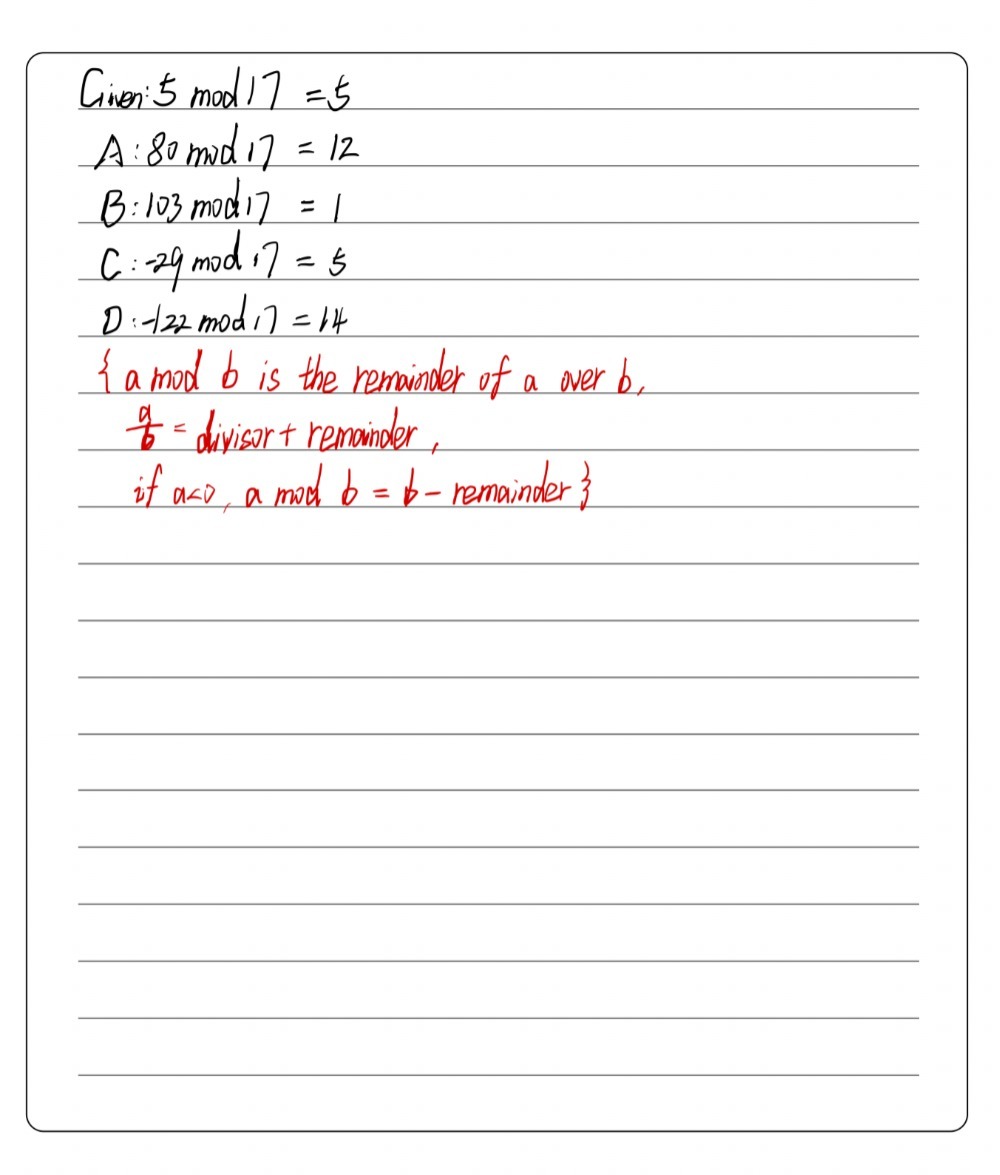 Given: 5 mod 17 = 5
A: 80 mod 17 = 12
B: 103 mod 17 = 1
C: -29 mod 17 = 5
D: -122 mod 17 = 14
{ a mod b is the remainder of a over b,
a/b = divisor + remainder,
if a<0, a mod b = b - remainder }